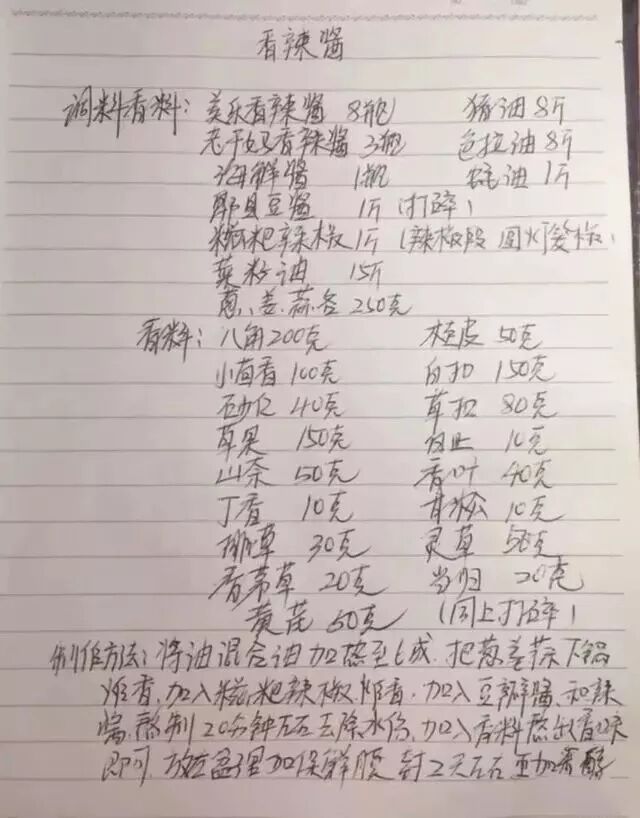 香辣酱
调料香料：美乐香辣酱 8瓶 猪油8斤
老干妈香辣酱 3瓶 色拉油8斤
海鲜酱 1瓶 蚝油1斤
郫县豆酱 1斤（打碎）
糍粑辣椒1斤（辣椒段
菜籽油 15斤
葱、姜、蒜各250克
香料：八角200克 桂皮50克
小茴香100克 白扣150克
砂仁40克 草扣80克
草果150克 白止10克
山奈50克 香叶40克
丁香10克 甘松10克
排草30克 灵草50克
香茅草20克 当归20克
黄芪50克（同上打碎）
制作方法：将油混合油加热至6成.把葱姜蒜下锅
炸香,加入糍粑辣椒炸香.加入豆瓣酱.和辣
酱.熬制20分钟左右去除水份.加入香料熬出香味
即可.放在盆里加保鲜膜封2天左右更加香醇